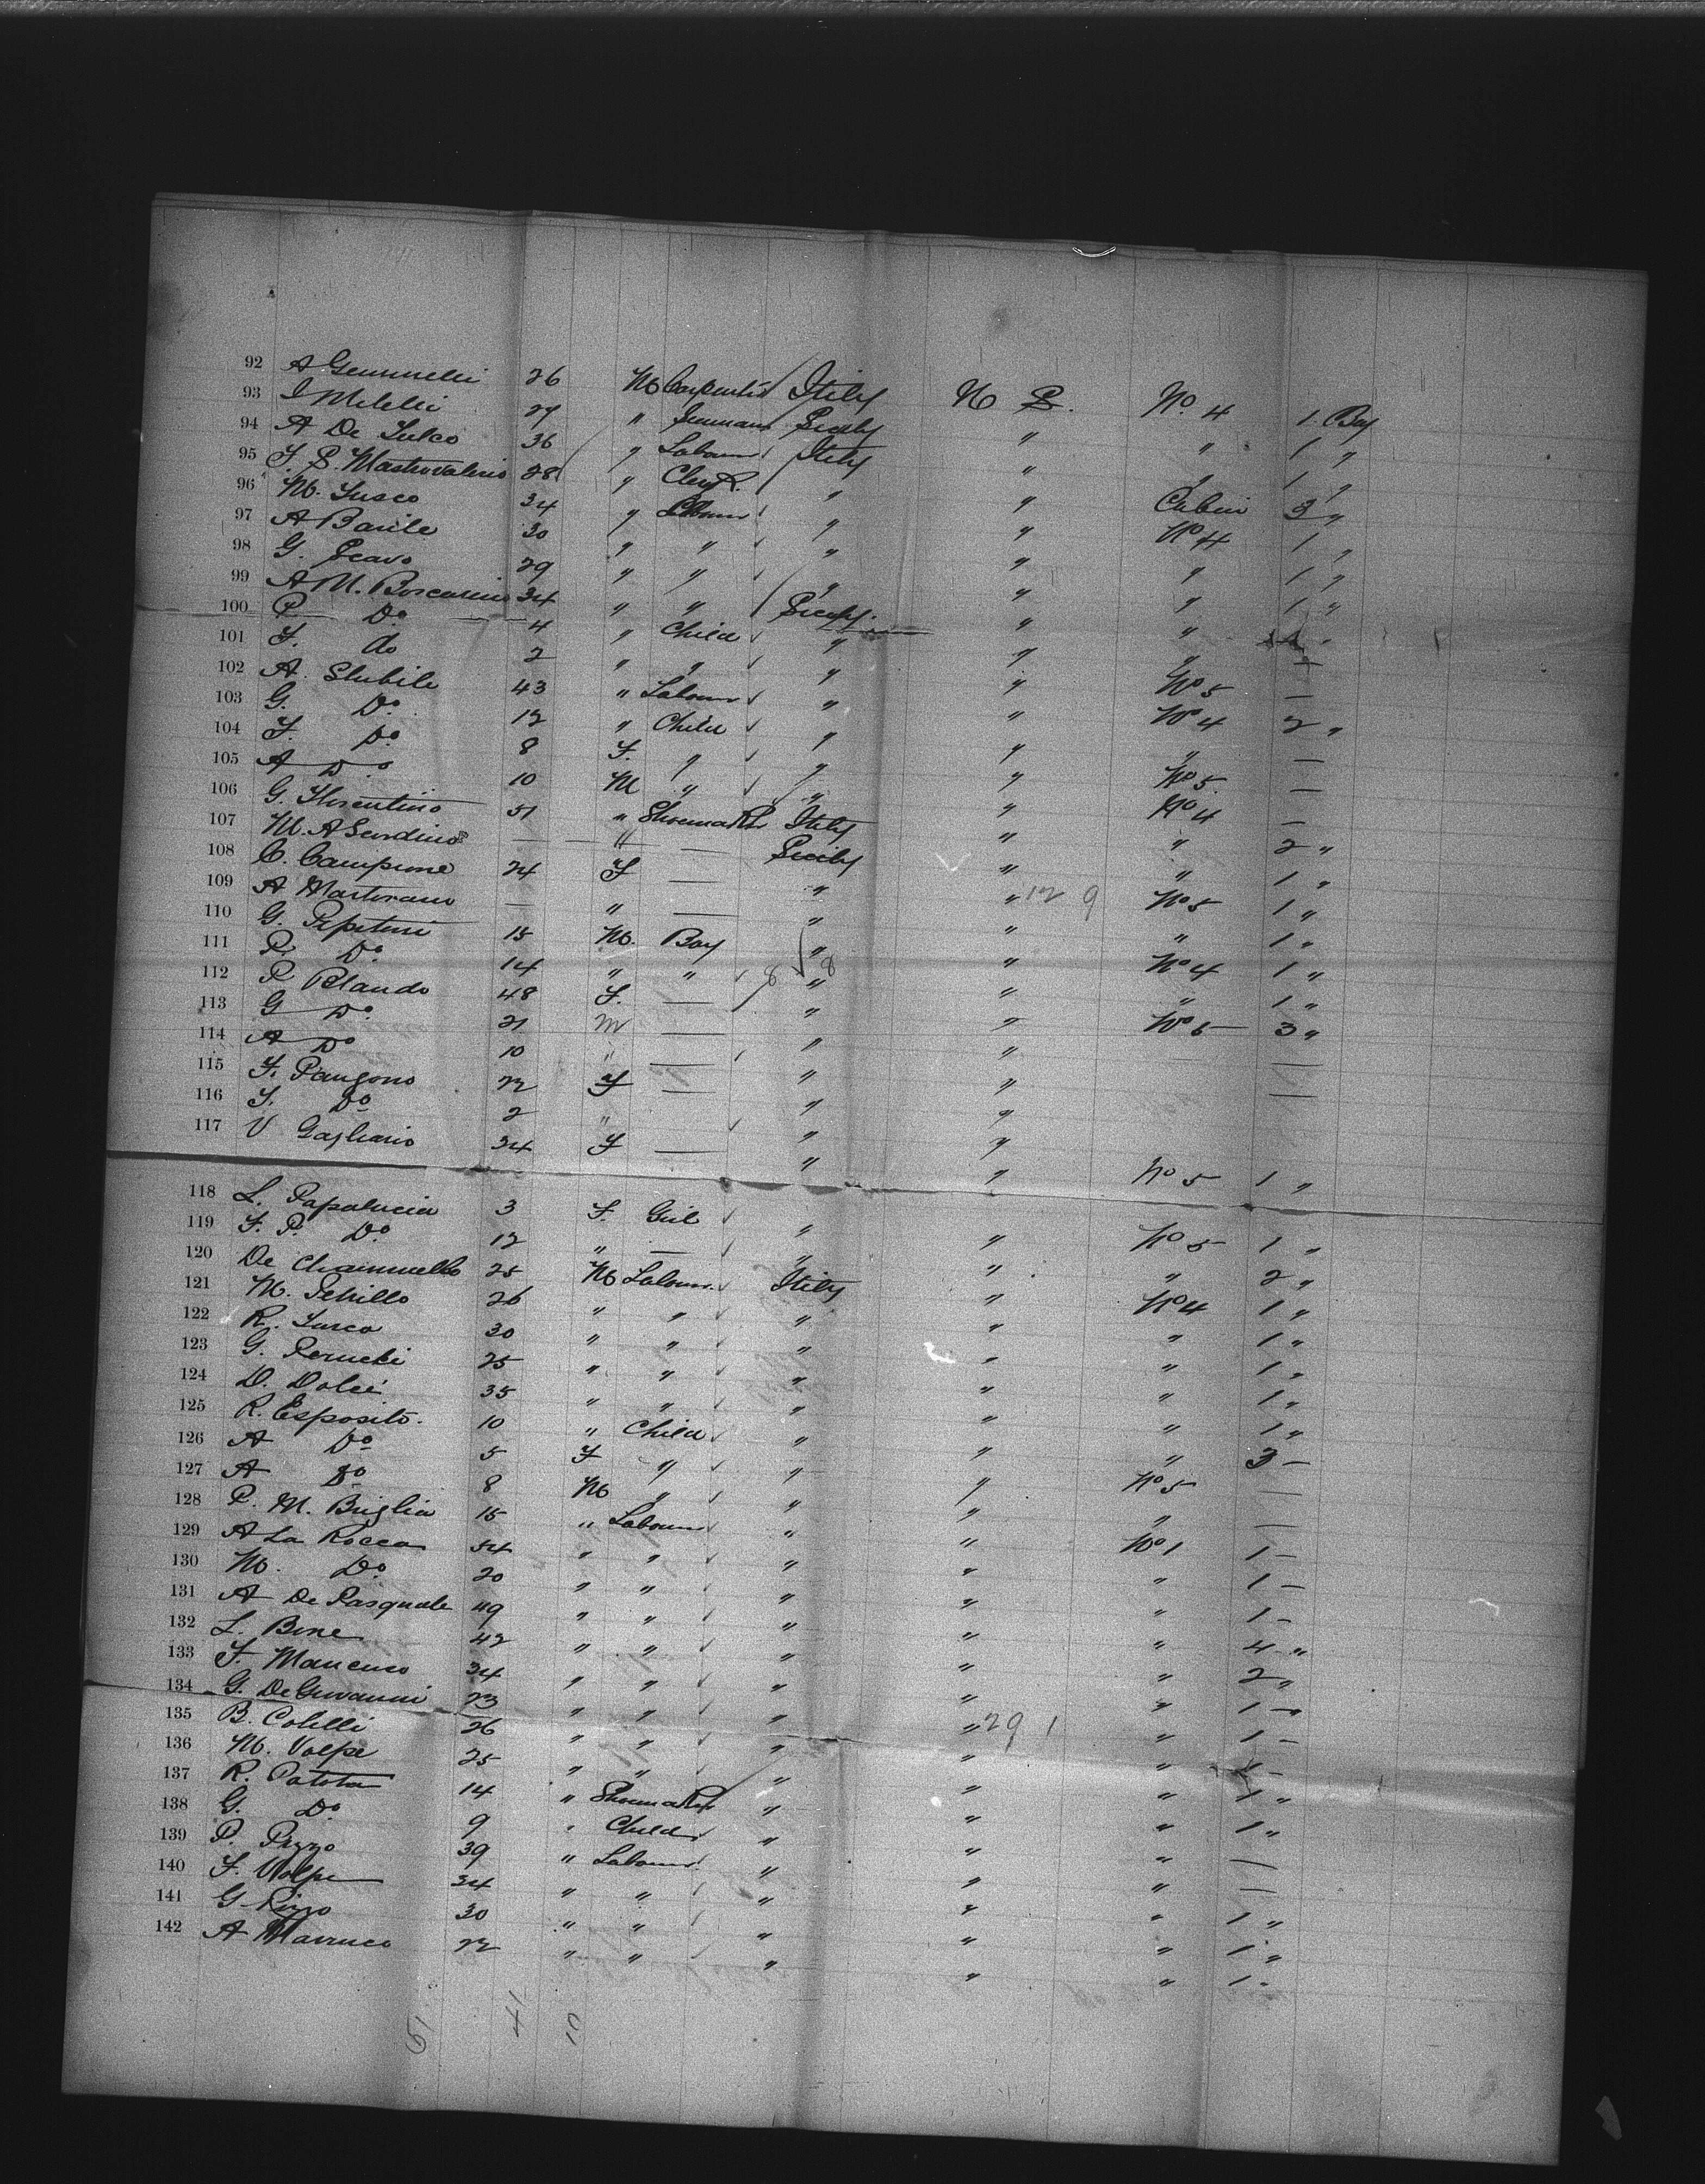 92 A 26 M Carpenter Italy U S. No. 4 1 Bag
93 27 " Seaman Sicily " " 1 "
94 A De 36 " Labour Italy " " 1 "
95 F. P. Mastrovalerio 28 " Clerk. " " Cabin 3 "
96 M. Fusco 34 " Labour " " No 4 1 "
97 A Barile 30 " " " " " 1 "
98 G. 29 " " " " " 1 "
99 A M. 34 " " Sicily. " "
100 P Do 4 " Child " " " —
101 F. do 2 " " " " No 5 —
102 A. Stabile 43 " Labour " " No 4 2 "
103 G. Do 12 " Child " " " —
104 F. Do 8 F. " " " No 5. —
105 A Do 10 M " " " No 4 —
106 G. Florentino 51 " Shoemaker Italy " " 2 "
107 M. A — " — Sicily " " 1 "
108 C. Campione 24 F — " " 12 9 No 5 1 "
109 A Martorano — " — " " " 1 "
110 G. 15 M. Boy " " No 4 1 "
111 P. Do 14 " " 8 8 " " " 1 "
112 P Blando 48 F. — " " No 5 3 "
113 G Do 21 M — " " —
114 A Do 10 " — " " —
115 F. 22 F — " "
116 F. Do 2 " " "
117 V Gagliano 34 F — " " No 5 1 "
118 L. Papalucia 3 F. Girl " " No 5 1 "
119 F. P. Do 12 " — " " " 2 "
120 De 25 M Labour. Italy " No 4 1 "
121 M. Petrillo 26 " " " " " 1 "
122 R. Fusco 30 " " " " " 1 "
123 G. 25 " " " " " 1 "
124 D. Dolci 35 " " " " " 1 "
125 R. Esposito. 10 " Child " " " 3 —
126 A Do 5 F " " " No 5 —
127 A Do 8 M " " " " —
128 P. M. Briglia 15 " Labour " " No 1 1 —
129 A La Rocca 54 " " " " " 1 —
130 M. Do. 20 " " " " " 1 —
131 A De Pasquale 49 " " " " " 4 "
132 L. Bone 42 " " " " " 2 "
133 F. Mancuso 34 " " " " " 1 —
134 G. De Giovanni 23 " " " " 29 1 " 1 —
135 B. Colelli 26 " " " " " 1 —
136 M. Volpe 25 " " " " " 1 "
137 R. Patota 14 " Shoemaker " " " 1 "
138 G. Do 9 " Child " " " —
139 P. Pizzo 39 " Labour. " " " —
140 F. Volpe 34 " " " " " 1 "
141 G. Rizzo 30 " " " " " 1 "
142 A 22 " " " " " 1 "
51 41 10